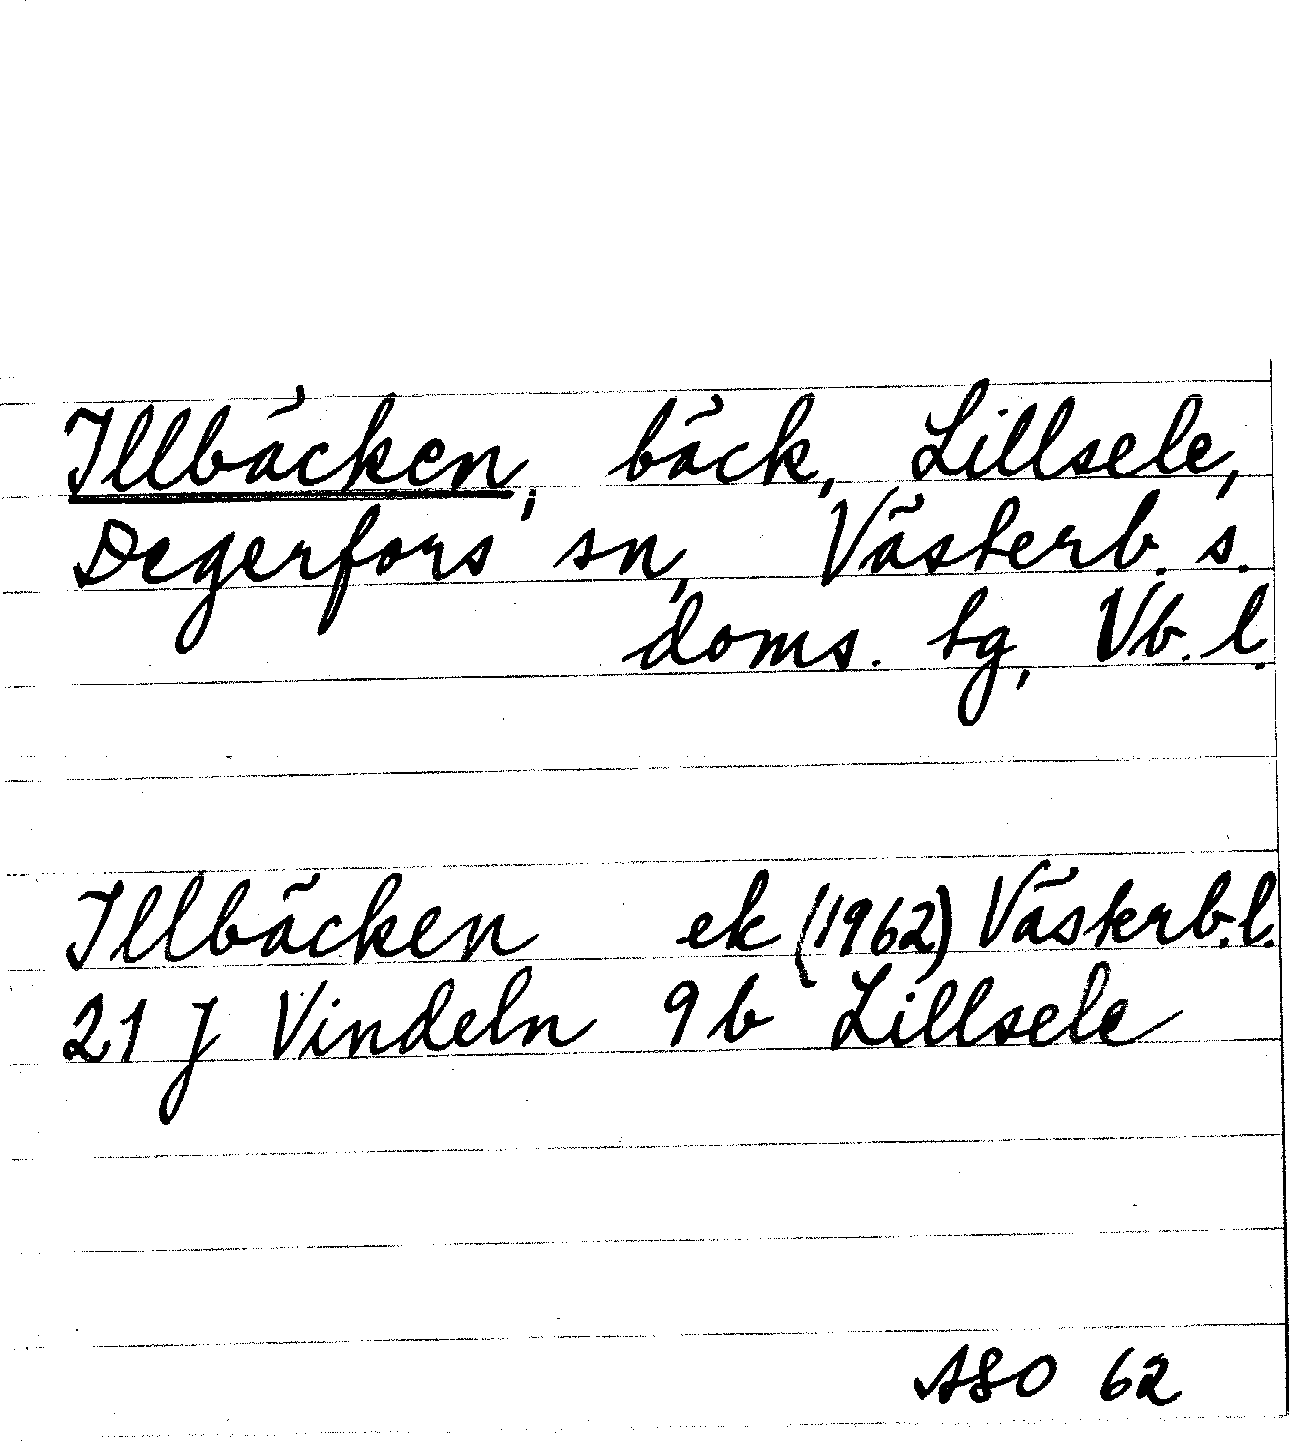 Illbäcken, bäck, Lillsele,
Degerfors sn, Västerb. s.
doms. tg, Vb. l.
Illbäcken ek (1962) Västerb.l.
21 J Vindeln 9 b Lillsele
ASO 62